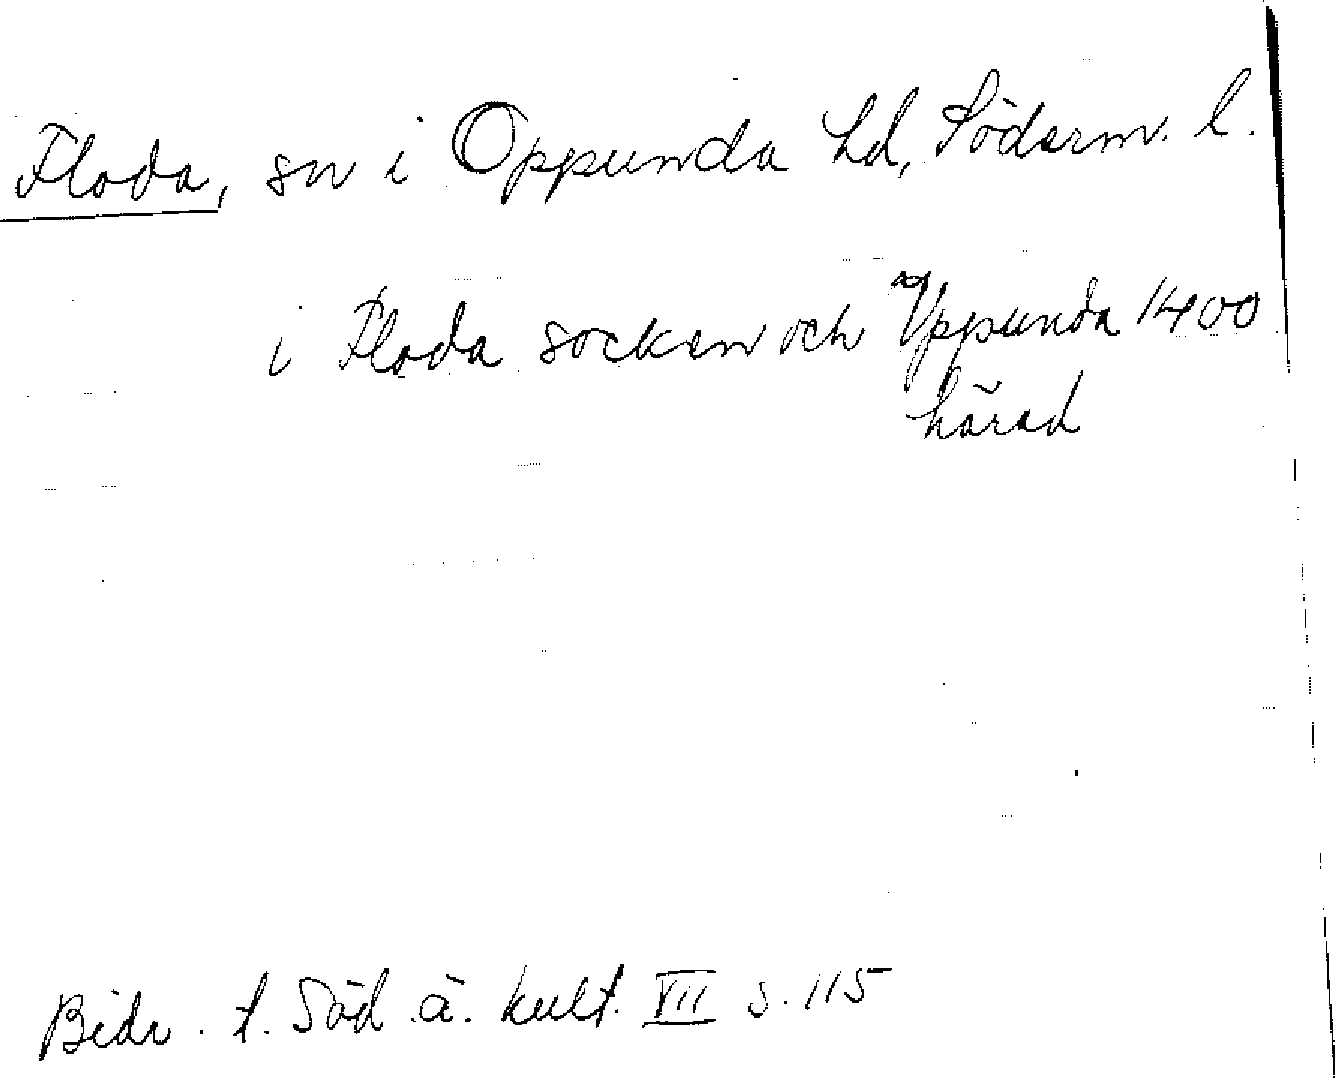 Floda, sn i Oppunda hd, Söderm. l.
i Floda socken och Vppunda 1400
härad
Bidr. t. Söd. ä. kult. VII s. 115